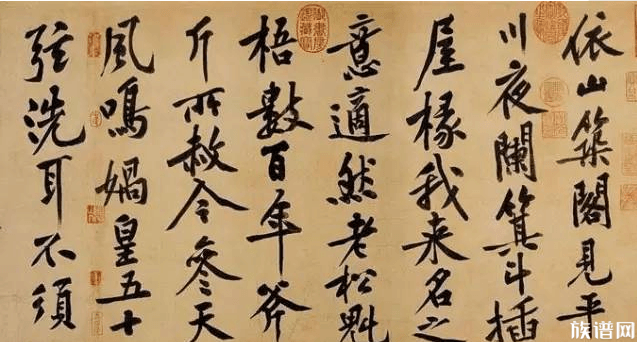 依山築閣見平
川夜闌箕斗插
屋椽我來名之
意適然老松魁
梧數百年斧
斤所赦今參天
風鳴媧皇五十
弦洗耳不須
族谱网